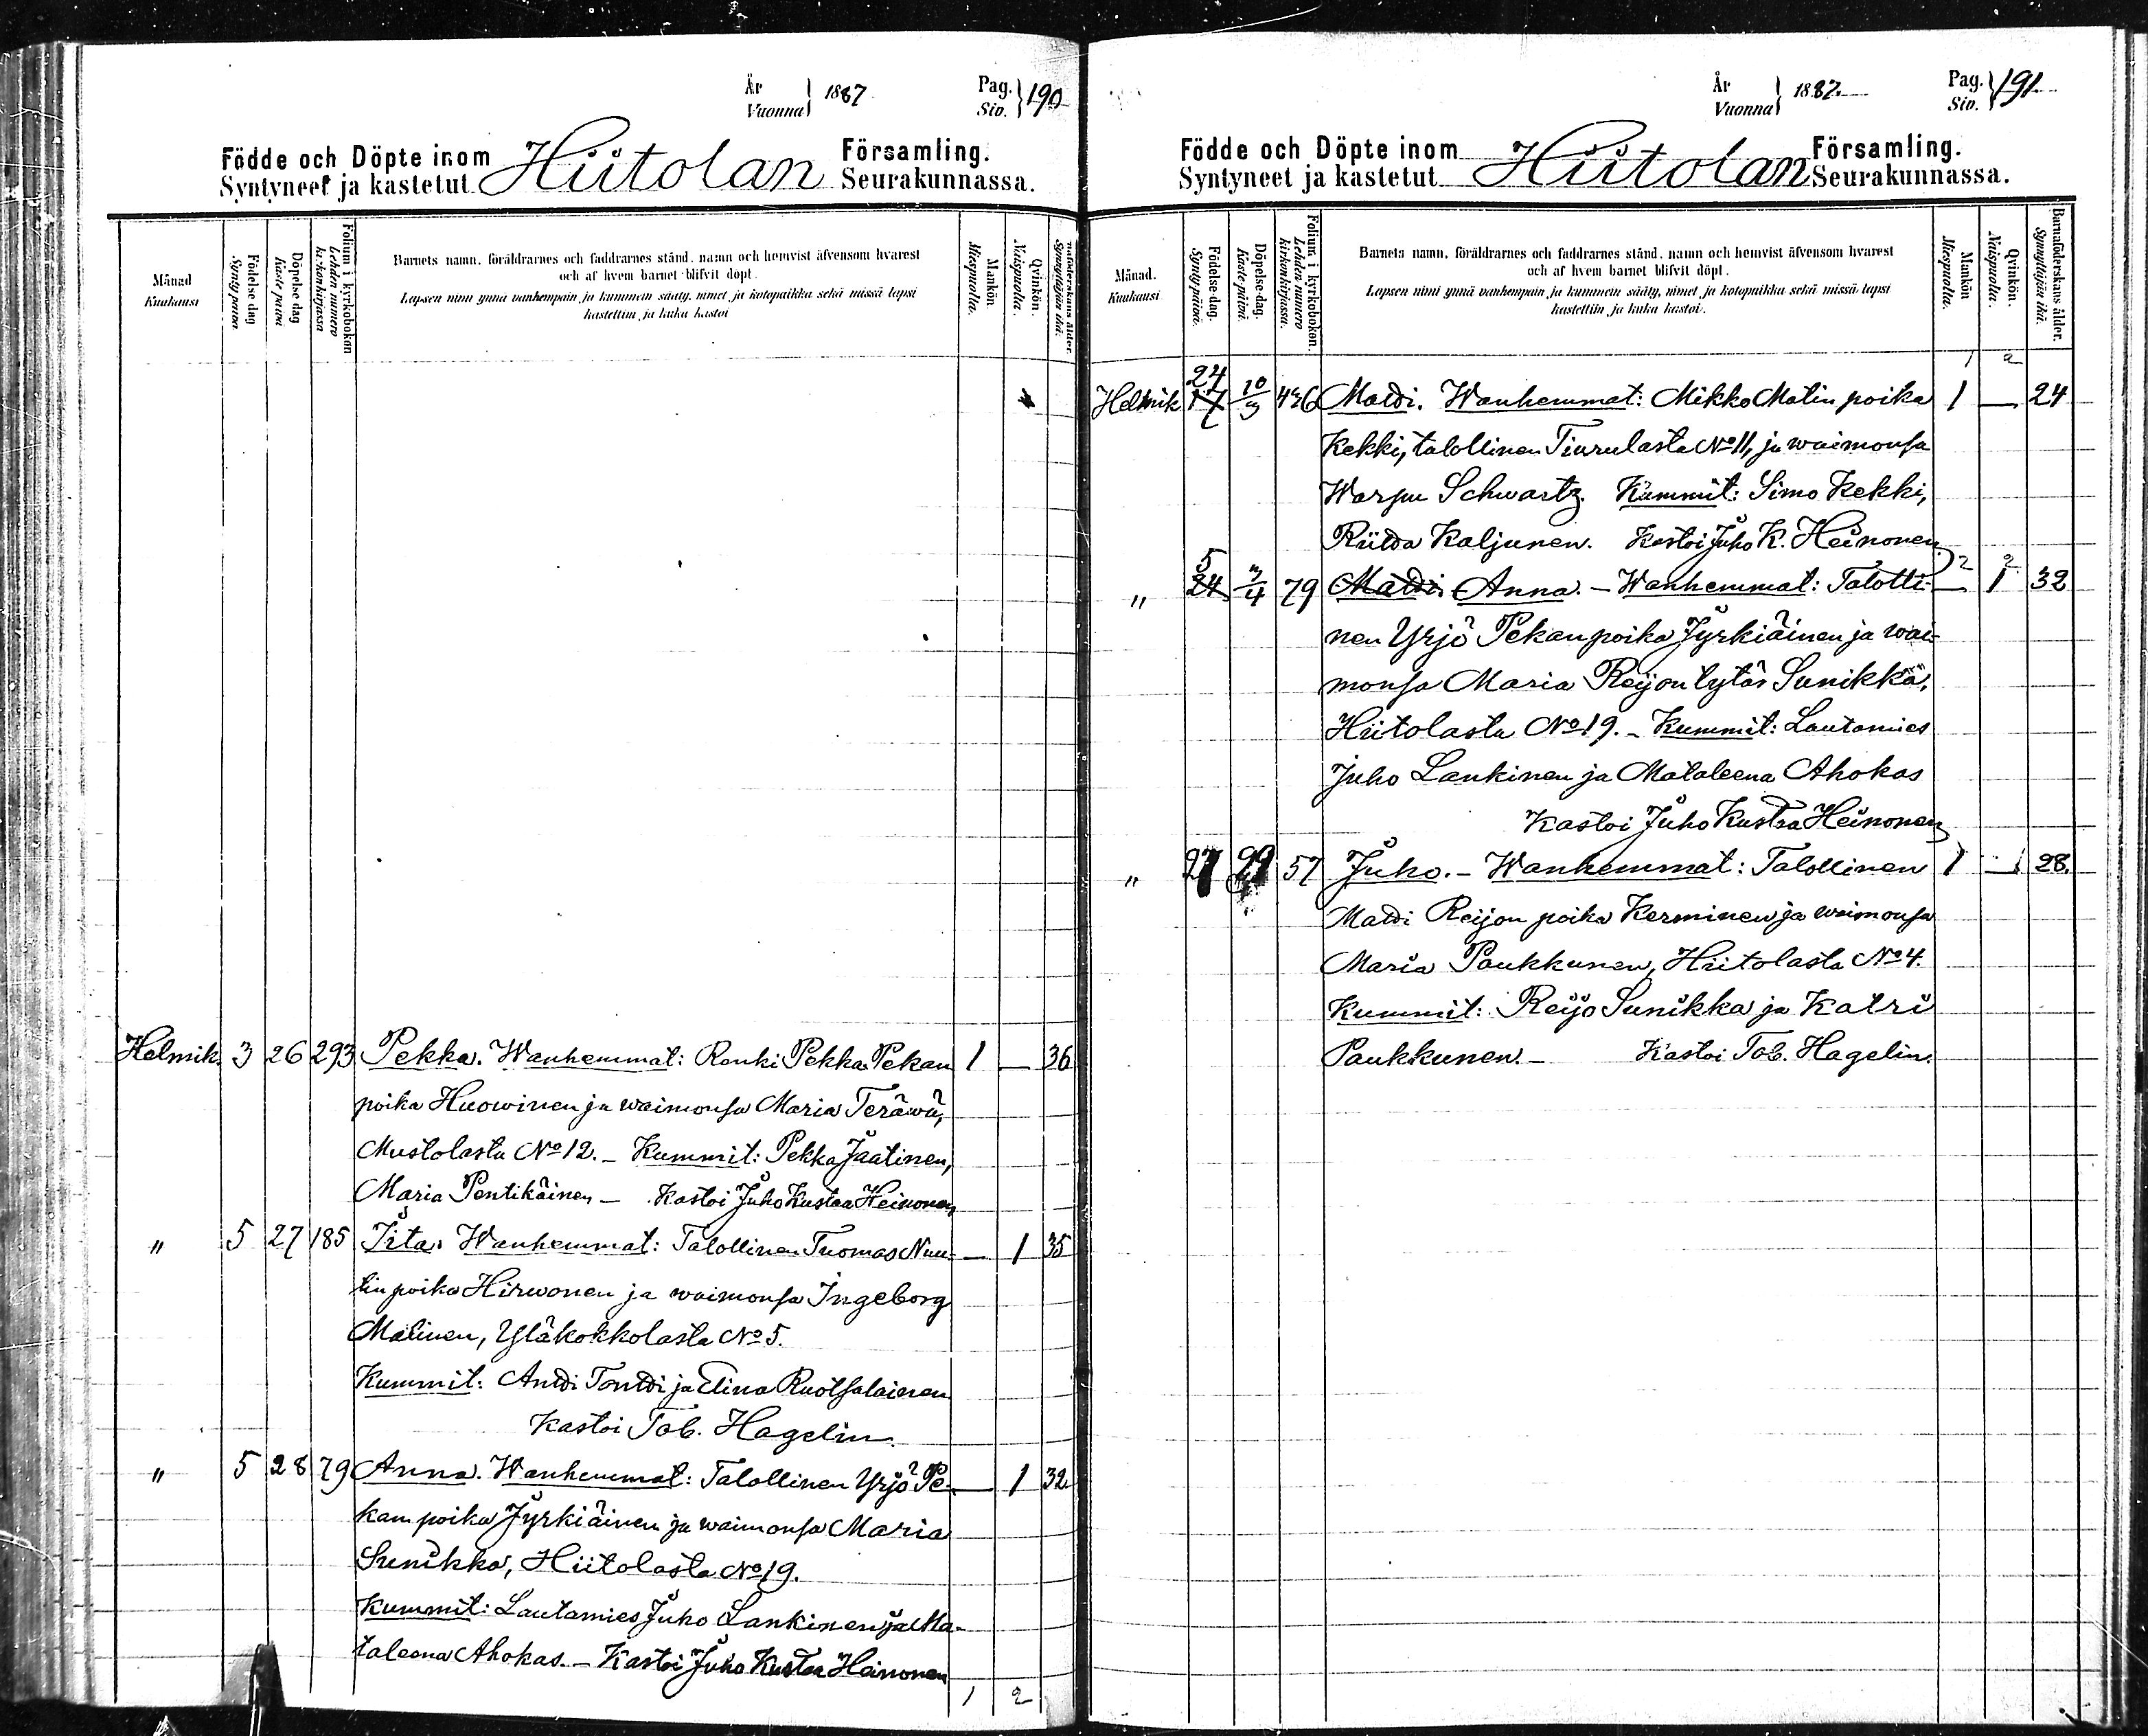 År
Vuonna } 1887
Pag.
Siv. } 190
Födde och Döpte inom
Syntyneet ja kastetut Hiitolan Församling.
Seurakunnassa.
Månad
Kuukausi
Födelse dag
Synty päivä
Döpelse dag
Kaste päivä
Folium i kyrkoboken
Lehden numero
kirkonkirjassa
Barnets namn, föräldrarnes och faddrarnes stånd, namn och hemvist äfvensom hvarest
och af hvem barnet blifvit döpt.
Lapsen nimi ynnä vanhempain ja kummein sääty, nimet ja kotopaikka sekä missä lapsi
kastettiin ja kuka kastoi
Mankön.
Miespuolia.
Qvinkön.
Naispuolia.
Synnyttäjän ikä.
Helmik. 3 26 293 Pekka. Wanhemmat: Renki Pekka Pekan 1 — 36
poika Huowinen ja waimonsa Maria Teräwä,
Mustolasta No 12. – Kummit: Pekka Jaatinen,
Maria Pentikäinen – Kastoi Juho Kustaa Heinonen
" 5 27 185 Iita. Wanhemmat: Talollinen Tuomas Nuu- — 1 35
tin poika Hirwonen ja waimonsa Ingeborg
Malinen, Yläkokkolasta No 5.
Kummit: Antti Tontti ja Elina Ruotsalainen
Kastoi Tob. Hagelin.
" 5 28 79 Anna. Wanhemmat: Talollinen Yrjö Pe- — 1 32
kan poika Jyrkiäinen ja waimonsa Maria
Sunikka, Hiitolasta No 19.
Kummit: Lautamies Juho Lankinen ja Ma-
taleena Ahokas. – Kastoi Juho Kustaa Heinonen
1 2
År
Vuonna } 1887.
Pag.
Siv. } 191
Födde och Döpte inom
Syntyneet ja kastetut Hiitolan Församling.
Seurakunnassa.
Månad.
Kuukausi
Födelse-dag.
Synty-päivä.
Döpelse-dag.
Kaste-päivä.
Folium i kyrkoboken.
Lehden numero
kirkonkirjassa.
Barnets namn, föräldrarnes och faddrarnes stånd, namn och hemvist äfvensom hvarest
och af hvem barnet blifvit döpt.
Lapsen nimi ynnä vanhempain ja kummein sääty, nimet ja kotopaikka sekä missä lapsi
kastettiin ja kuka kastoi.
Mankön
Miespuolia.
Qvinkön.
Naispuolia.
Barnaföderskans ålder.
Synnyttäjän ikä.
1 2
24
Helmik 17 10/3 426 Matti. Wanhemmat: Mikko Matin poika 1 — 24
Kekki, talollinen Tiurulasta No 11, ja waimonsa
Warpu Schwartz. Kummit: Simo Kekki,
Riitta Kaljunen. Kastoi Juho K. Heinonen
5
" 24 3/4 79 Matti Anna. – Wanhemmat: Talolli- — 1 32
nen Yrjö Pekan poika Jyrkiäinen ja wai-
monsa Maria Reijon tytär Sunikka,
Hiitolasta No 19. – Kummit: Lautamies
Juho Lankinen ja Mataleena Ahokas
Kastoi Juho Kustaa Heinonen
" 27 57 Juho. – Wanhemmat: Talollinen 1 — 28.
Matti Reijon poika Kerminen ja waimonsa
Maria Paukkunen, Hiitolasta No 4.
Kummit: Reijo Sunikka ja Katri
Paukkunen. – Kastoi Tob. Hagelin.